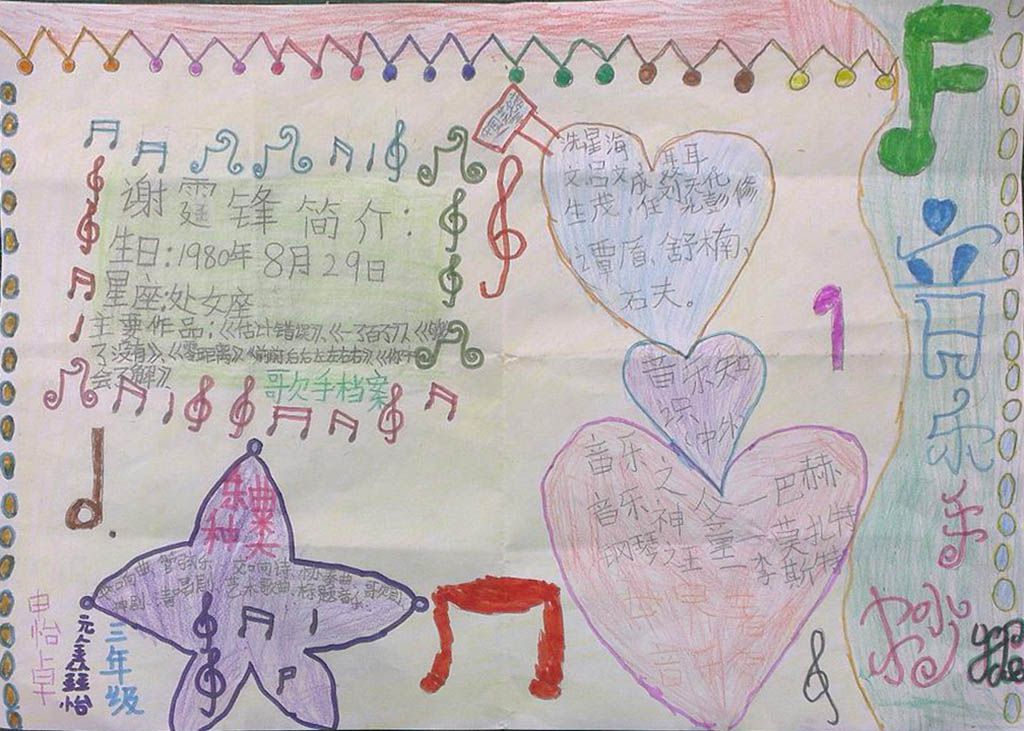 谢霆锋简介:
生日:1980年8月29日
星座:处女座
主要作品:《估计错误》、《一了百了》、《够
了没有》、《零距离》《前前后后左左右右》《你不
会了解》
歌手档案
洗星海 聂耳
文吕文成刘天化
生茂、任光彭修
谭盾、舒楠、
石夫。
音乐知
识
(中外
音乐之父—巴赫
音乐神童—莫扎特
钢琴之王—李斯特
音乐手抄报
乐曲
种类
交响曲、管弦乐、交响诗、协奏曲、歌剸
舞剧、清唱剧、艺术歌曲、标题音乐
申怡卓
三年级